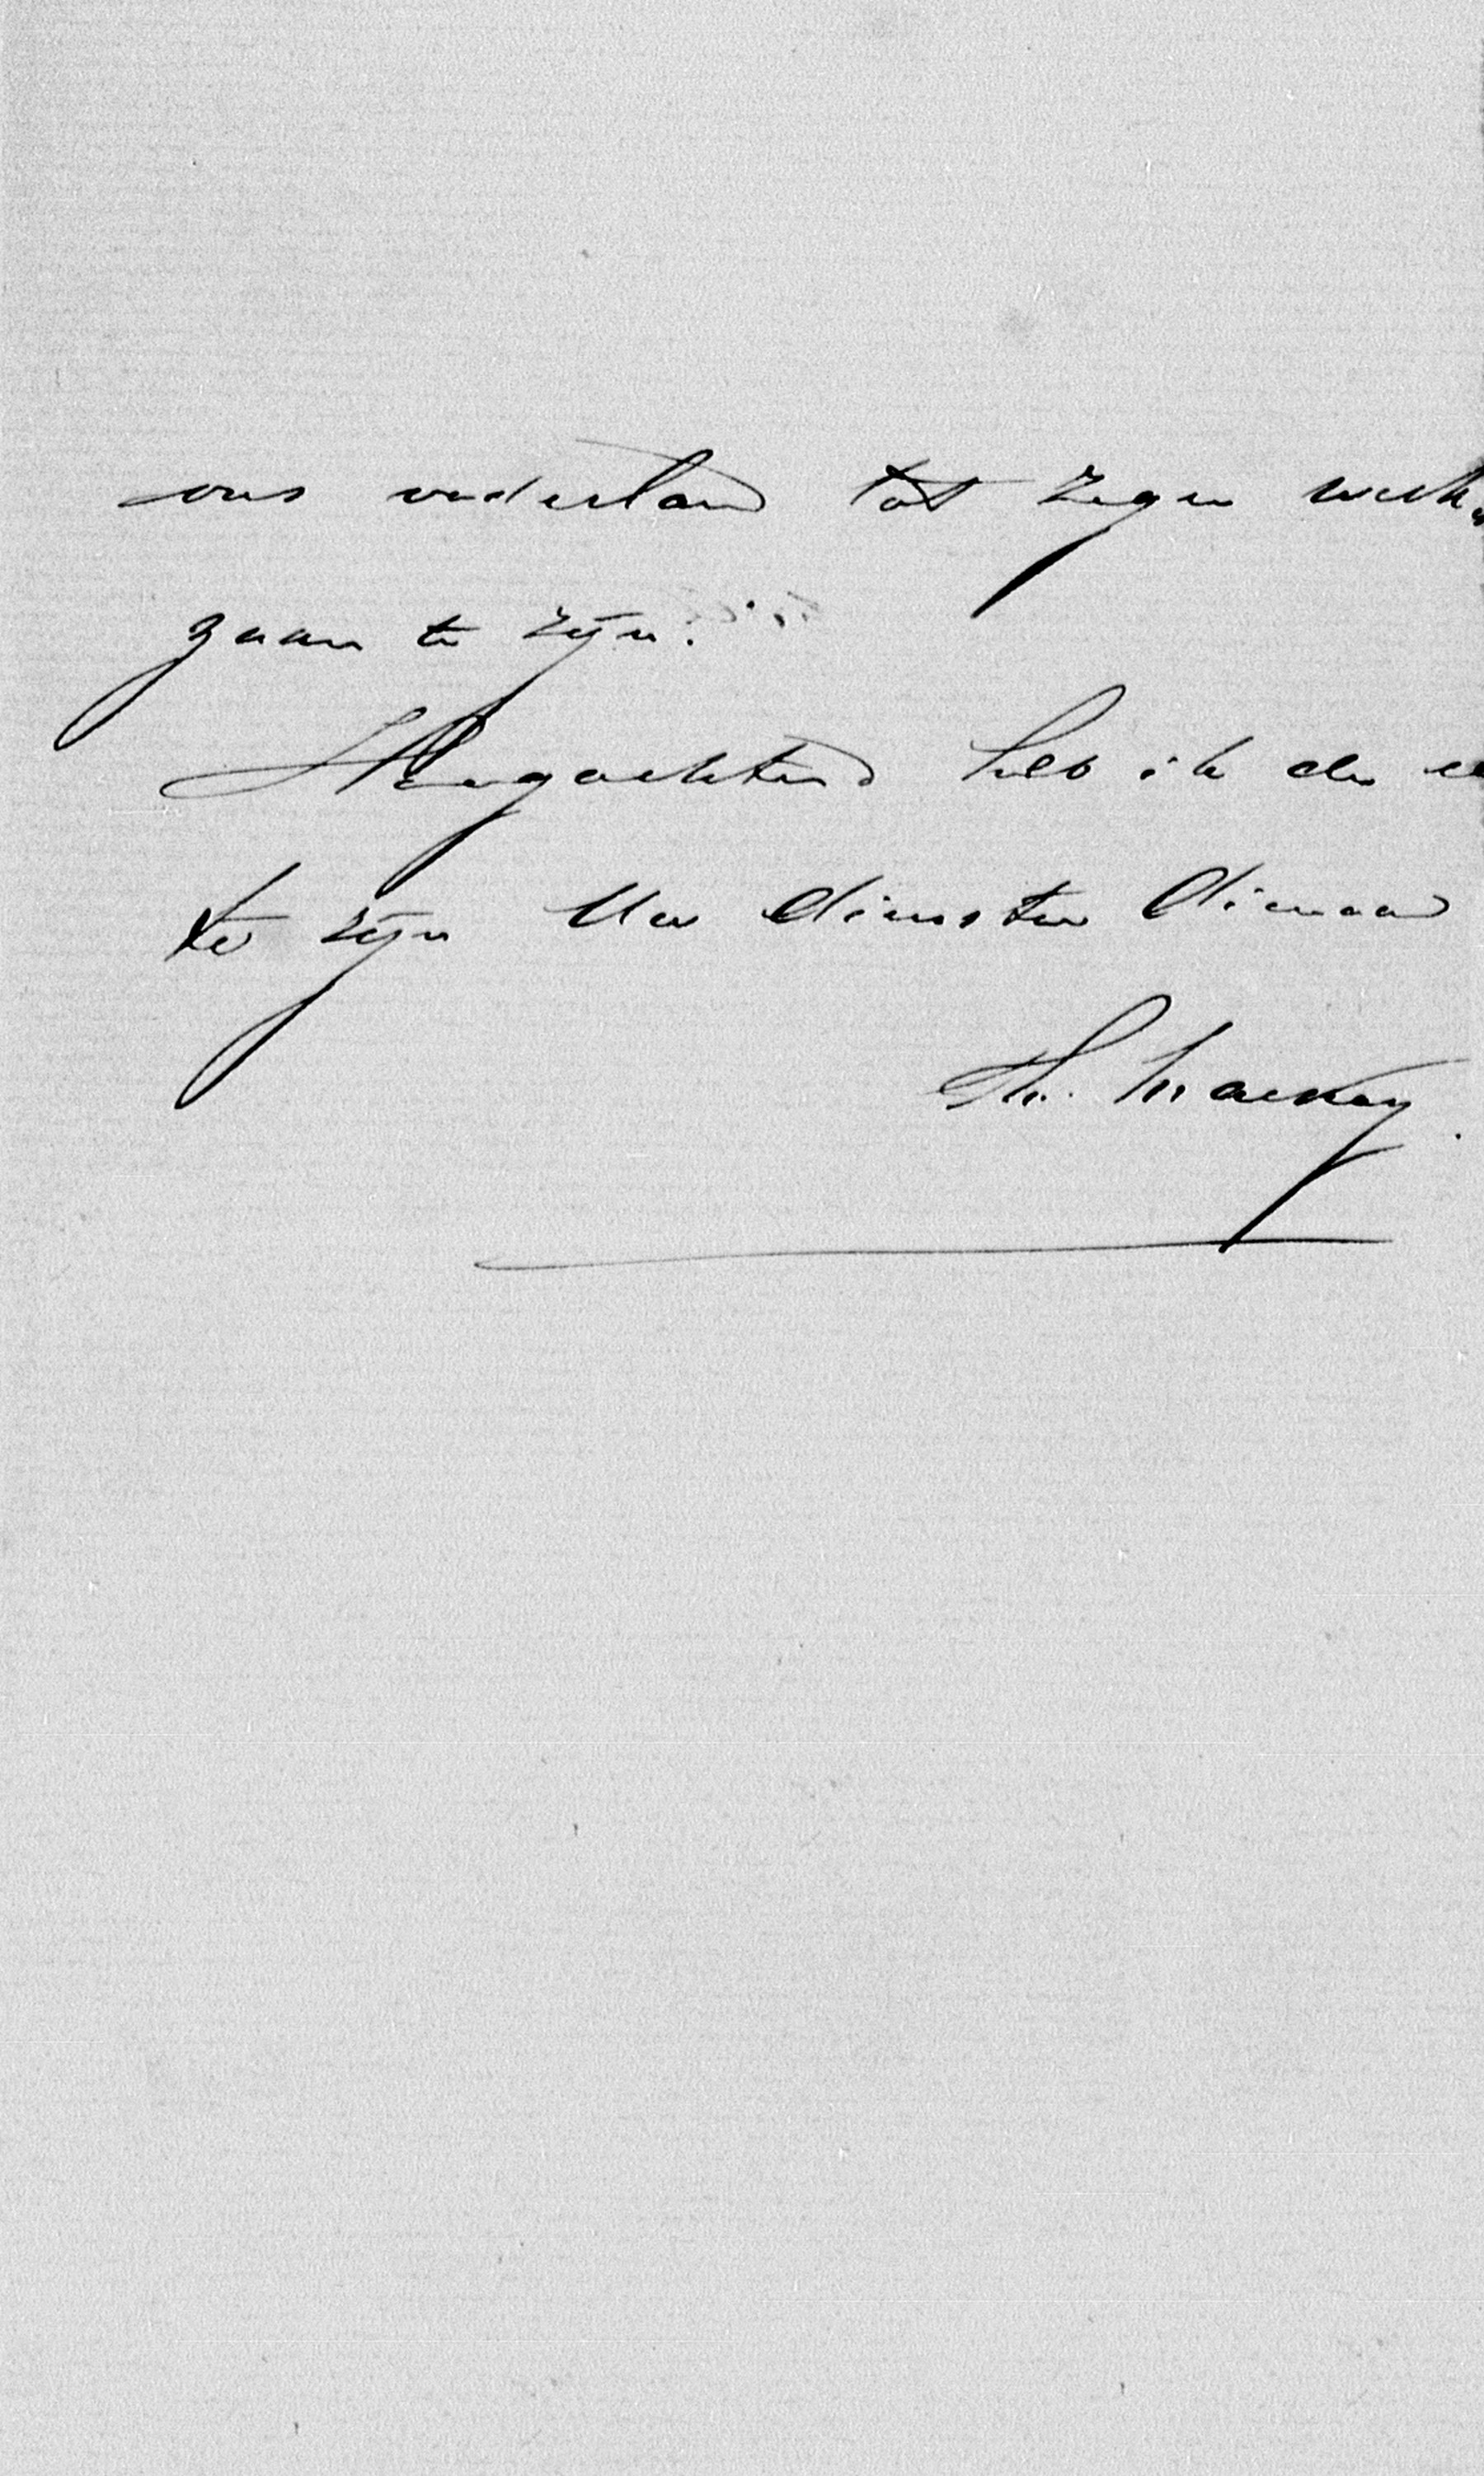 ons vaderland tot zegen werk-
zaam te zijn.
Hoogachtend heb ik de ee
te zijn Uw dienstw Dienaar
Th. Mackay.